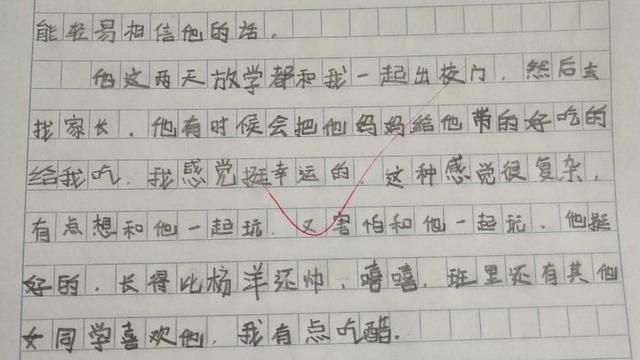 能轻易相信他的话。
他这两天放学都和我一起出校门，然后去
找家长。他有时候会把他妈妈给他带的好吃的
给我吃，我感觉挺幸运的，这种感觉很复杂，
有点想和他一起玩，又害怕和他一起玩，他挺
好的，长得比杨洋还帅，嘻嘻，班里还有其他
女同学喜欢他，我有点吃醋。